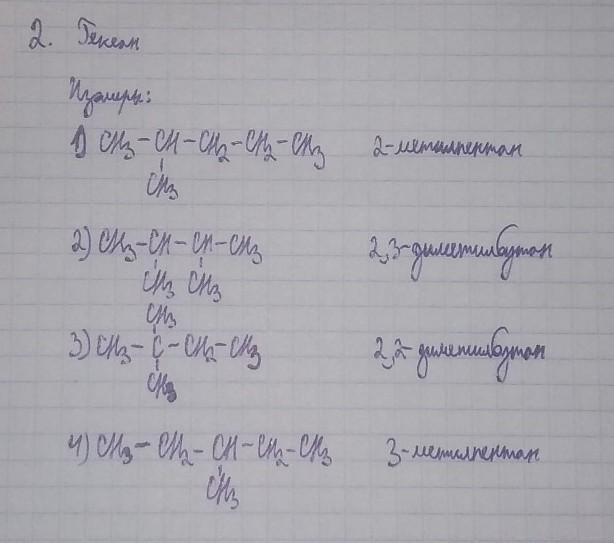 2. Гексан
Изомеры:
1) CH3-CH-CH2-CH2-CH3 2-метилпентан
CH3
2) CH3-CH-CH-CH3 2,3-диметилбутан
CH3 CH3
CH3
3) CH3-C-CH2-CH3 2,2-диметилбутан
CH3
4) CH3-CH2-CH-CH2-CH3 3-метилпентан
CH3